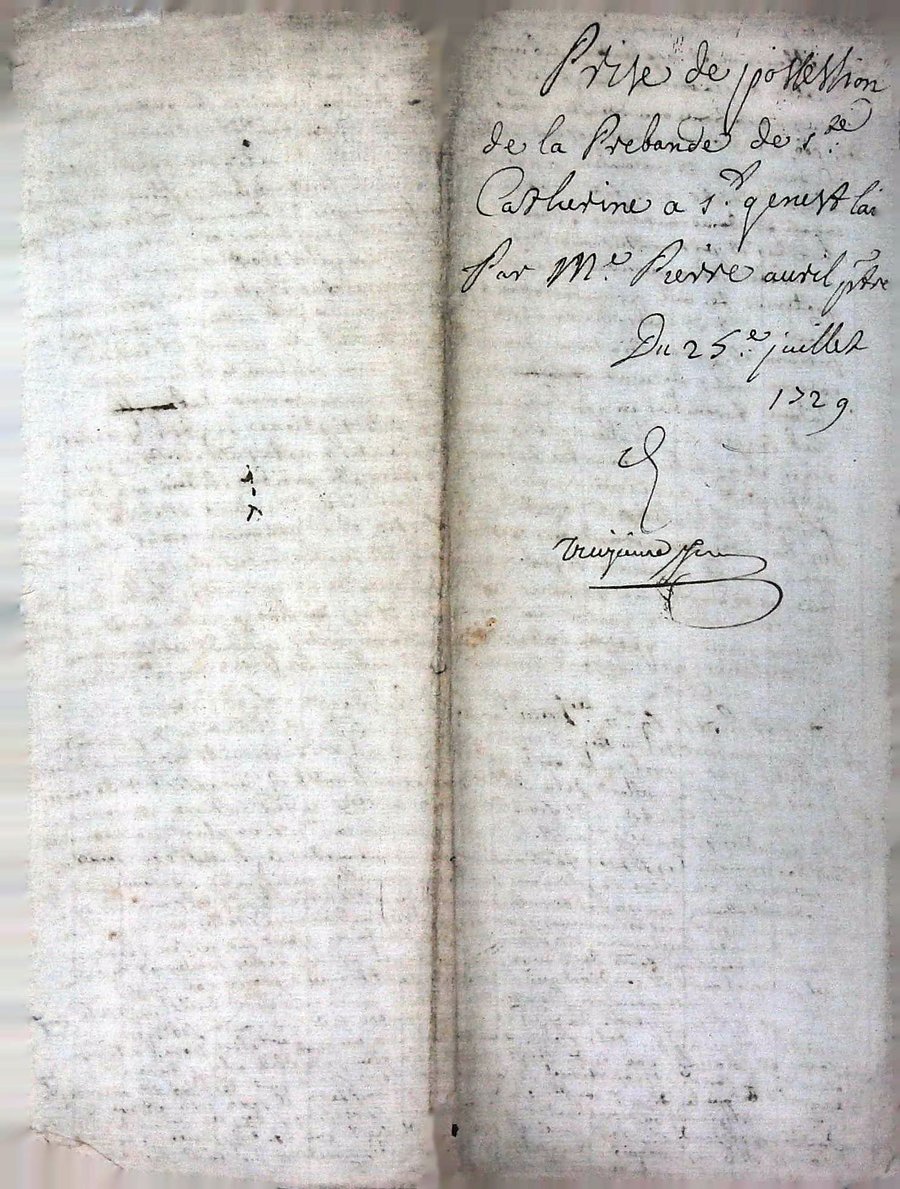 Prise de possession
de la Prebande de s.te
Catherine a s.t genest lai
Par M.e Pierre auril ptre
Du 25.e juillet
1729